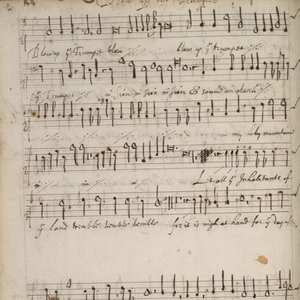 Blow up yͤ Trumpet blow blow up yͤ trumpet
yͤ Trumpet in sion in sion in sion & sound an alarm
in my holy mountain
Let all yͤ Inhabitants of
yͤ land tremble tremble tremble for it is nigh at hand for yͤ day of